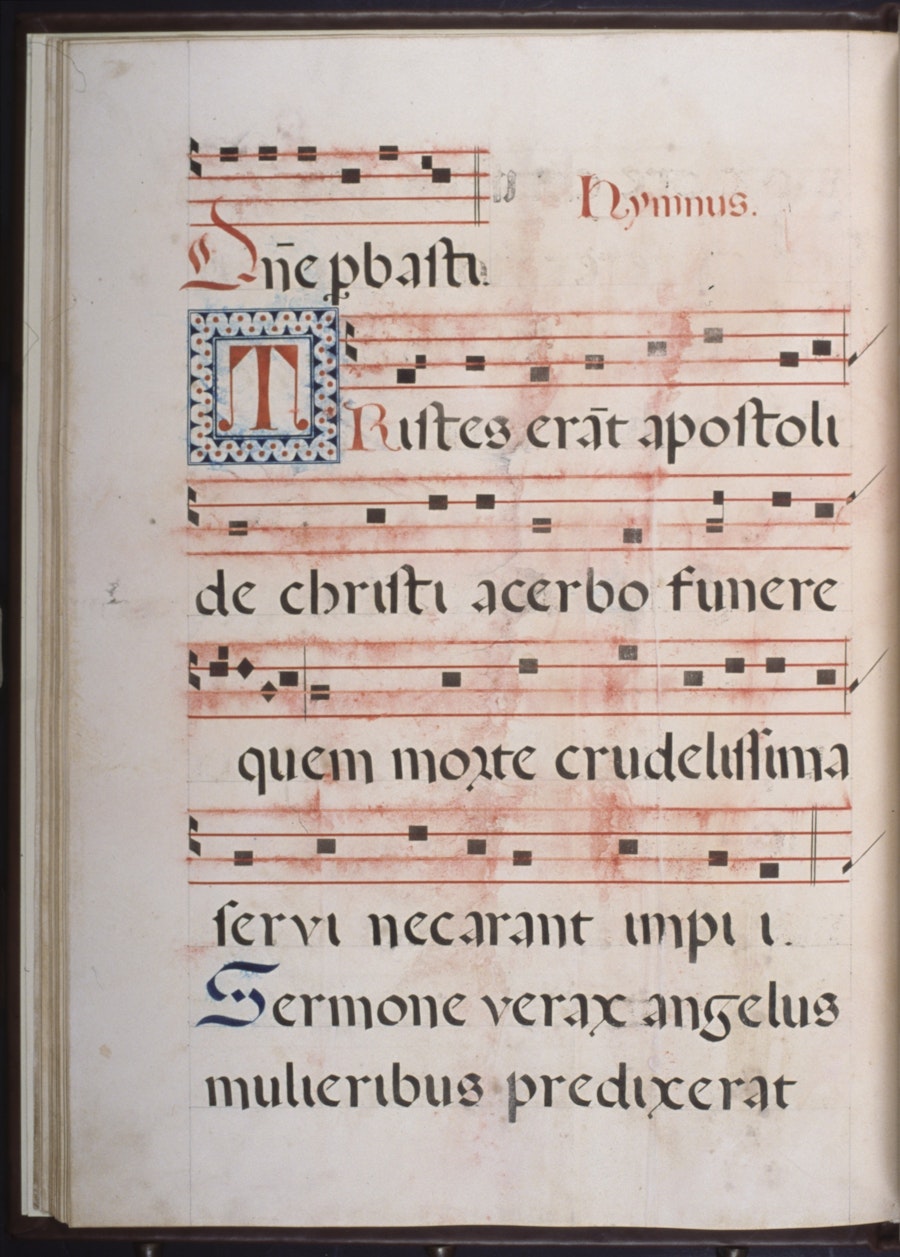 Hymnus.
Dn̄e ꝓbasti.
TRistes erāt apostoli
de christi acerbo funere
quem morte crudelissima
servi necarant impi i.
Sermone verax angelus
mulieribus predixerat